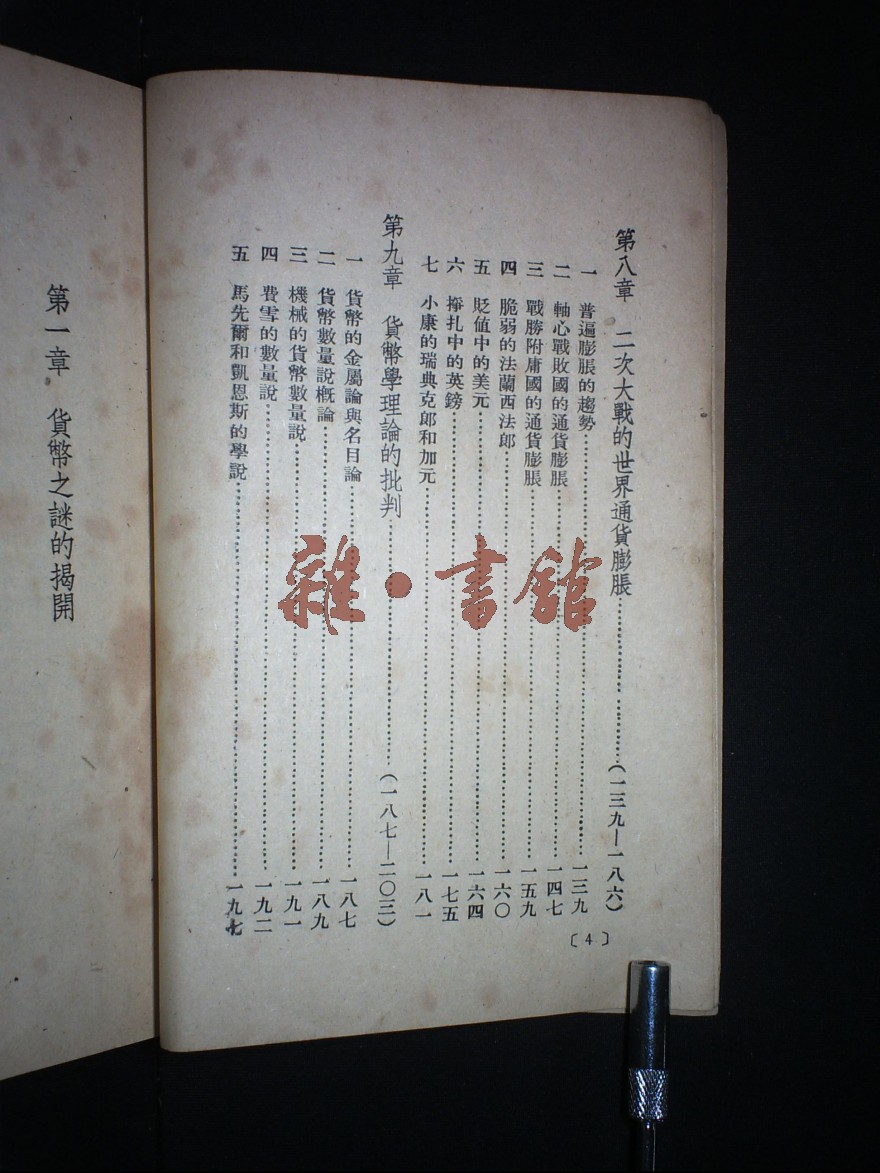 第八章 二次大戰的世界通貨膨脹……………………(一三九—一八六)
一 普遍膨脹的趨勢……………………一三九
二 軸心戰敗國的通貨膨脹……………………一四七
三 戰勝附庸國的通貨膨脹……………………一五九
四 脆弱的法蘭西法郎……………………一六〇
五 貶値中的美元……………………一六四
六 掙扎中的英鎊……………………一七五
七 小康的瑞典克郎和加元……………………一八一
第九章 貨幣學理論的批判……………………(一八七—二〇三)
一 貨幣的金屬論與名目論……………………一八七
二 貨幣數量說槪論……………………一八九
三 機械的貨幣數量說……………………一九一
四 費雪的數量說……………………一九二
五 馬先爾和凱恩斯的學說……………………一九七
〔4〕
第一章 貨幣之謎的揭開
雜·書館